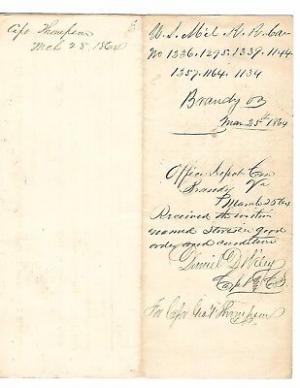 Capt Thompson
Mch 25. 1864
U. S. Mil R. R. Car
No 1336. 1295. 1339. 1144.
1357. 1164. 1134
Brandy
Mar 25th 1864
Office Depot
Brandy Va
March 25th 64
Received the within
named Stores in good
order and condition
Daniel D Wiley
Capt & C S
For Capt Geo T Thompson